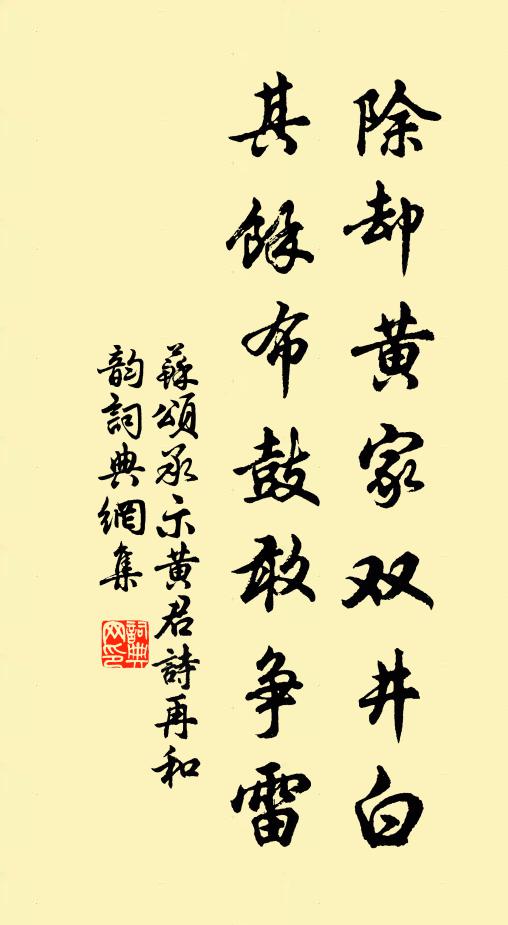 除却黄家双井白
其餘布鼓敢争雷
蘇頌承示黄君詩再和
韵詞典網集
詞典网印